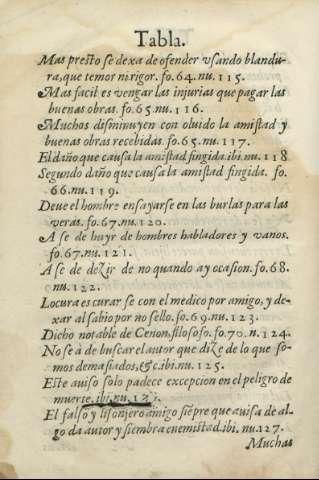 Tabla.
Mas presto se dexa de ofender vsando blandu-
ra, que temor ni rigor. fo. 64. nu. 115.
Mas facil es vengar las injurias que pagar las
buenas obras. fo. 65. nu. 116.
Muchos disminuyen con oluido la amistad y
buenas obras recebidas. fo. 65. nu. 117.
El daño que causa la amistad fingida. ibi. nu. 118
Segundo daño que causa la amistad fingida. fo.
66. nu. 119.
Deue el hombre ensayarse en las burlas para las
veras. fo. 67. nu. 120.
A se de huyr de hombres habladores y vanos.
fo. 67. nu. 121.
A se de dezir de no quando ay ocasion. fo. 68.
nu. 122.
Locura es curar se con el medico por amigo, y de-
xar al sabio por no sello. fo. 69. nu. 123.
Dicho notable de Cenon, filosofo. fo. 70. n. 124.
No se à de buscar el autor que dize de lo que so-
mos demasiados, &c. ibi. nu. 125.
Este auiso solo padece excepcion en el peligro de
muerte. ibi. nu.
El falso y lisonjero amigo siẽpre que auisa de al-
go da autor y siembra enemistad. ibi. nu. 127.
Muchas